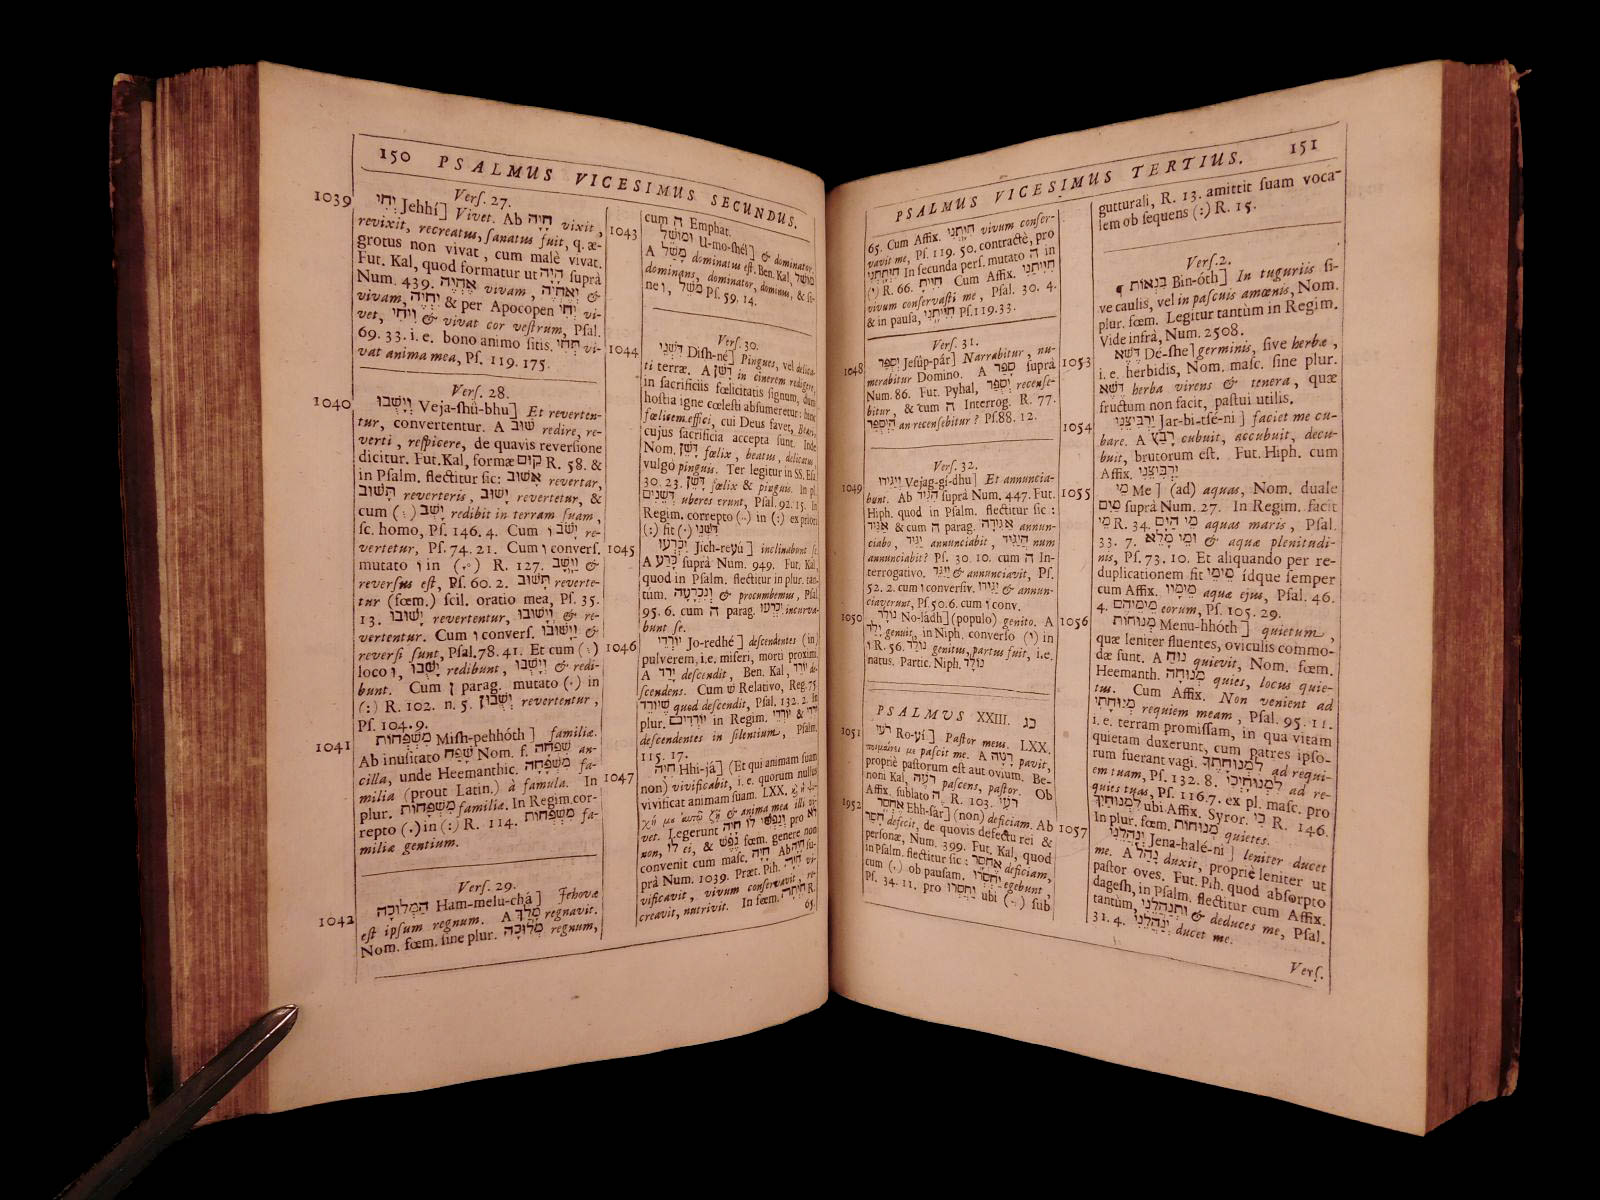 150 PSALMUS VICESIMUS SECUNDUS.
Verſ. 27.
1039 יְחִי Jehhí] Vivet. Ab חָיָה vixit,
revixit, recreatus, ſanatus fuit, q. æ-
grotus non vivat, cum malè vivat.
Fut. Kal, quod formatur ut הָיָה ſuprà
Num. 439. אֶחְיֶה vivam, וְאֶחְיֶה &
vivam, יִחְיֶה & per Apocopen יְחִי vi-
vet, וִיחִי & vivat cor veſtrum, Pſal.
69. 33. i. e. bono animo ſitis. תְּחִי vi-
vat anima mea, Pſ. 119. 175.
Verſ. 28.
1040 וְיָשֻׁבוּ Veja-ſhú-bhu] Et reverten-
tur, convertentur. A שׁוּב redire, re-
verti, reſpicere, de quavis reverſione
dicitur. Fut. Kal, formæ קוּם R. 58. &
in Pſalm. flectitur ſic: אָשׁוּב revertar,
תָּשׁוּב reverteris, יָשׁוּב revertetur, &
cum (:) יָשֻׁב redibit in terram ſuam,
ſc. homo, Pſ. 146. 4. Cum ו יָשֹׁב re-
vertetur, Pſ. 74. 21. Cum ו converſ.
mutato ו in R. 127. וַיָּשָׁב &
reverſus eſt, Pſ. 60. 2. תָּשׁוּב reverte-
tur (fœm.) ſcil. oratio mea, Pſ. 35.
13. יָשׁוּבוּ revertentur, וְיָשׁוּבוּ & re-
vertentur. Cum ו converſ. וַיָּשׁוּבוּ &
reverſi ſunt, Pſal. 78. 41. Et cum
loco ו, יָשֻׁבוּ redibunt, וְיָשֻׁבוּ & redi-
bunt. Cum ן parag. mutato (·) in
(:) R. 102. n. 5. יְשֻׁבוּן revertentur,
Pſ. 104. 9.
1041 מִשְׁפְּחוֹת Miſh-pehhóth] familiæ.
Ab inuſitato שָׁפַח Nom. f. שִׁפְחָה an-
cilla, unde Heemanthic. מִשְׁפָּחָה fa-
milia (prout Latin.) à famula. In
plur. מִשְׁפָּחוֹת familiæ. In Regim. cor-
repto in (:) R. 114. מִשְׁפְּחוֹת fa-
miliæ gentium.
Verſ. 29.
1042 הַמְּלוּכָה Ham-melu-chá] Jehovæ
eſt ipſum regnum. A מָלַךְ regnavit.
Nom. fœm. ſine plur. מְלוּכָה regnum,
cum ה Emphat.
1043 וּמוֹשֵׁל U-mo-ſhél] & dominator.
A מָשַׁל dominatus eſt. Ben. Kal, מוֹשֵׁל
dominans, dominator, dominus, & ſi-
ne ו, מֹשֵׁל Pſ. 59. 14.
Verſ. 30.
1044 דִּשְׁנֵי Diſh-né] Pingues, vel delica-
ti terræ. A דִּשֵּׁן in cinerem redigere,
in ſacrificiis fœlicitatis ſignum, dum
hoſtia igne cœleſti abſumeretur: hinc
fœlicem effici, cui Deus favet, Beari,
cujus ſacrificia accepta ſunt. Inde
Nom. דָּשֵׁן fœlix, beatus, delicatus,
vulgo pinguis. Ter legitur in SS. Eſa.
30. 23. דָּשֵׁן fœlix & pinguis. In pl.
דְּשֵׁנִים uberes erunt, Pſal. 92. 15. In
Regim. correpto (··) in (:) ex priori
(:) fit (·) דִּשְׁנֵי
1045 יִכְרְעוּ Jich-reyú] inclinabunt ſe.
A כָּרַע ſuprà Num. 949. Fut. Kal,
quod in Pſalm. flectitur in plur. tan-
tùm. וְנִכְרָעָה & procumbemus, Pſal.
95. 6. cum ה parag. יִכְרְעוּ incurva-
bunt ſe.
1046 יוֹרְדֵי Jo-redhé] deſcendentes (in)
pulverem, i. e. miſeri, morti proximi.
A יָרַד deſcendit, Ben. Kal, יוֹרֵד de-
ſcendens. Cum שׁ Relativo, Reg. 75.
שֶׁיּוֹרֵד quod deſcendit, Pſal. 132. 2. In
plur. יוֹרְדִים in Regim. יוֹרְדֵי & יֹרְדֵי
deſcendentes in ſilentium, Pſalm.
115. 17.
1047 חִיָּה Hhi-já] (Et qui animam ſuam
non) vivificabit, i. e. quorum nullus
vivificat animam ſuam. LXX.
& anima mea illi vi-
vet. Legerunt וְנַפְשִׁי לוֹ חָיָה pro לֹא
non, לוֹ ei, & נֶפֶשׁ fœm. genere non
convenit cum maſc. חָיָה Ab חָיָה ſu-
prà Num. 1039. Præt. Pih. חִיָּה vi-
vificavit, vivum conſervavit, re-
creavit, nutrivit. In fœm. חִיְּתָה R.
65.
PSALMUS VICESIMUS TERTIUS. 151
65. Cum Affix. חִיַּתְנִי vivum conſer-
vavit me, Pſ. 119. 50. contractè, pro
חִיְּתַתְנִי In ſecunda perſ. mutato ה in
(י) R. 66. חִיִּיתָ Cum Affix. חִיִּיתַנִי
vivum conſervaſti me, Pſal. 30. 4.
& in pauſa, חִיִּיתָנִי Pſ. 119. 33.
Verſ. 31.
1048 יְסֻפַּר Jeſúp-pár] Narrabitur, nu-
merabitur Domino. A סָפַר ſuprà
Num. 86. Fut. Pyhal, יְסֻפַּר recenſe-
bitur, & cum ה Interrog. R. 77.
הַיְסֻפַּר an recenſebitur? Pſ. 88. 12.
Verſ. 32.
1049 וְיַגִּידוּ Vejag-gí-dhu] Et annuncia-
bunt. Ab הִגִּיד ſuprà Num. 447. Fut.
Hiph. quod in Pſalm. flectitur ſic:
אַגִּיד & cum ה parag. אַגִּידָה annun-
ciabo, יַגִּיד annunciabit, הֲיַגִּיד num
annunciabit? Pſ. 30. 10. cum ה In-
terrogativo. וַיַּגֵּד & annunciavit, Pſ.
52. 2. cum ו converſiv. וַיַּגִּידוּ & annun-
ciaverunt, Pſ. 50. 6. cum ו conv.
1050 נוֹלָד No-ládh] (populo) genito. A
יָלַד genuit, in Niph. converſo (י) in
ו R. 56. נוֹלַד genitus, partus fuit, i. e.
natus. Partic. Niph. נוֹלָד
PSALMUS XXIII. כג
1051 רֹעִי Ro-yí] Paſtor meus. LXX.
paſcit me. A רָעָה pavit,
propriè paſtorum eſt aut ovium. Be-
noni Kal, רֹעֶה paſcens, paſtor. Ob
Affix. ſublato ה R. 103. רֹעִי
1952 אֶחְסָר Ehh-ſár] (non) deficiam. Ab
חָסַר defecit, de quovis defectu rei &
perſonæ, Num. 399. Fut. Kal, quod
in Pſalm. flectitur ſic: אֶחְסָר deficiam,
cum ob pauſam. יַחְסְרוּ egebunt,
Pſ. 34. 11. pro יַחְסְרוּ ubi ſub
gutturali, R. 13. amittit ſuam voca-
lem ob ſequens (:) R. 15.
Verſ. 2.
¶ בִּנְאוֹת Bin-óth] In tuguriis ſi-
ve caulis, vel in paſcuis amœnis, Nom.
plur. fœm. Legitur tantùm in Regim.
Vide infrà, Num. 2508.
1053 דֶּשֶׁא Dé-ſhe] germinis, ſive herbæ,
i. e. herbidis, Nom. maſc. ſine plur.
דֶּשֶׁא herba virens & tenera, quæ
fructum non facit, paſtui utilis.
1054 יַרְבִּיצֵנִי Jar-bi-tſé-ni] faciet me cu-
bare. A רָבַץ cubuit, accubuit, decu-
buit, brutorum eſt. Fut. Hiph. cum
Affix. יַרְבִּיצֵנִי
1055 מֵי Me] (ad) aquas, Nom. duale
מַיִם ſuprà Num. 27. In Regim. facit
מֵי R. 34. מֵי הַיָּם aquas maris, Pſal.
33. 7. וּמֵי מָלֵא & aquæ plenitudi-
nis, Pſ. 73. 10. Et aliquando per re-
duplicationem fit מֵימֵי ídque ſemper
cum Affix. מֵימָיו aquæ ejus, Pſal. 46.
4. מֵימֵיהֶם eorum, Pſ. 105. 29.
1056 מְנוּחוֹת Menu-hhóth] quietum,
quæ leniter fluentes, oviculis commo-
dæ ſunt. A נוּחַ quievit, Nom. fœm.
Heemanth. מְנוּחָה quies, locus quie-
tus. Cum Affix. Non venient ad
מְנוּחָתִי requiem meam, Pſal. 95. 11.
i. e. terram promiſſam, in qua vitam
quietam duxerunt, cum patres ipſo-
rum fuerant vagi. לִמְנוּחָתֶךָ ad requi-
em tuam, Pſ. 132. 8. לִמְנוּחָיְכִי ad re-
quies tuas, Pſ. 116. 7. ex pl. maſc. pro
לִמְנוּחַיִךְ ubi Affix. Syror. כִי R. 146.
In plur. fœm. מְנוּחוֹת quietes.
1057 יְנַהֲלֵנִי Jena-halé-ni] leniter ducet
me. A נָהַל duxit, propriè leniter ut
paſtor oves. Fut. Pih. quod abſorpto
dageſh, in Pſalm. flectitur cum Affix.
tantùm, וּתְנַהֲלֵנִי & deduces me, Pſal.
31. 4. יְנַהֲלֵנִי ducet me.
Verſ.